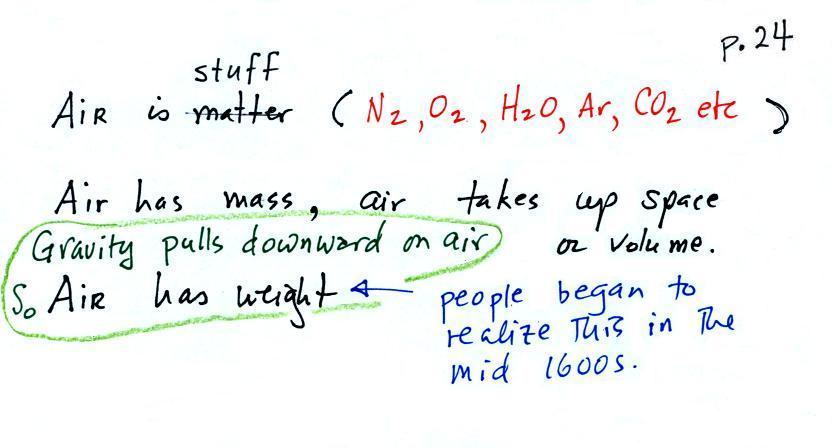 p. 24
stuff
Air is matter (N2, O2, H2O, Ar, CO2 etc)
Air has mass, air takes up space
or volume.
Gravity pulls downward on air
So Air has weight
people began to
realize this in the
mid 1600s.